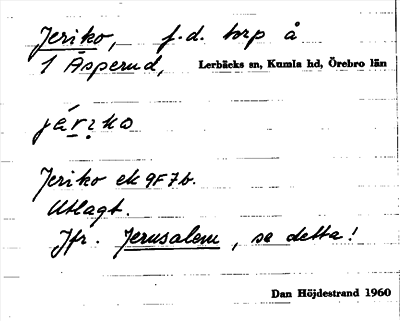 Jeriko, f.d. torp å
1 Äsperud, Lerbäcks sn, Kumla hd, Örebro län
Jeriko ek 9F7b.
Utlagt.
Jfr. Jerusalem, se detta!
Dan Höjdestrand 1960